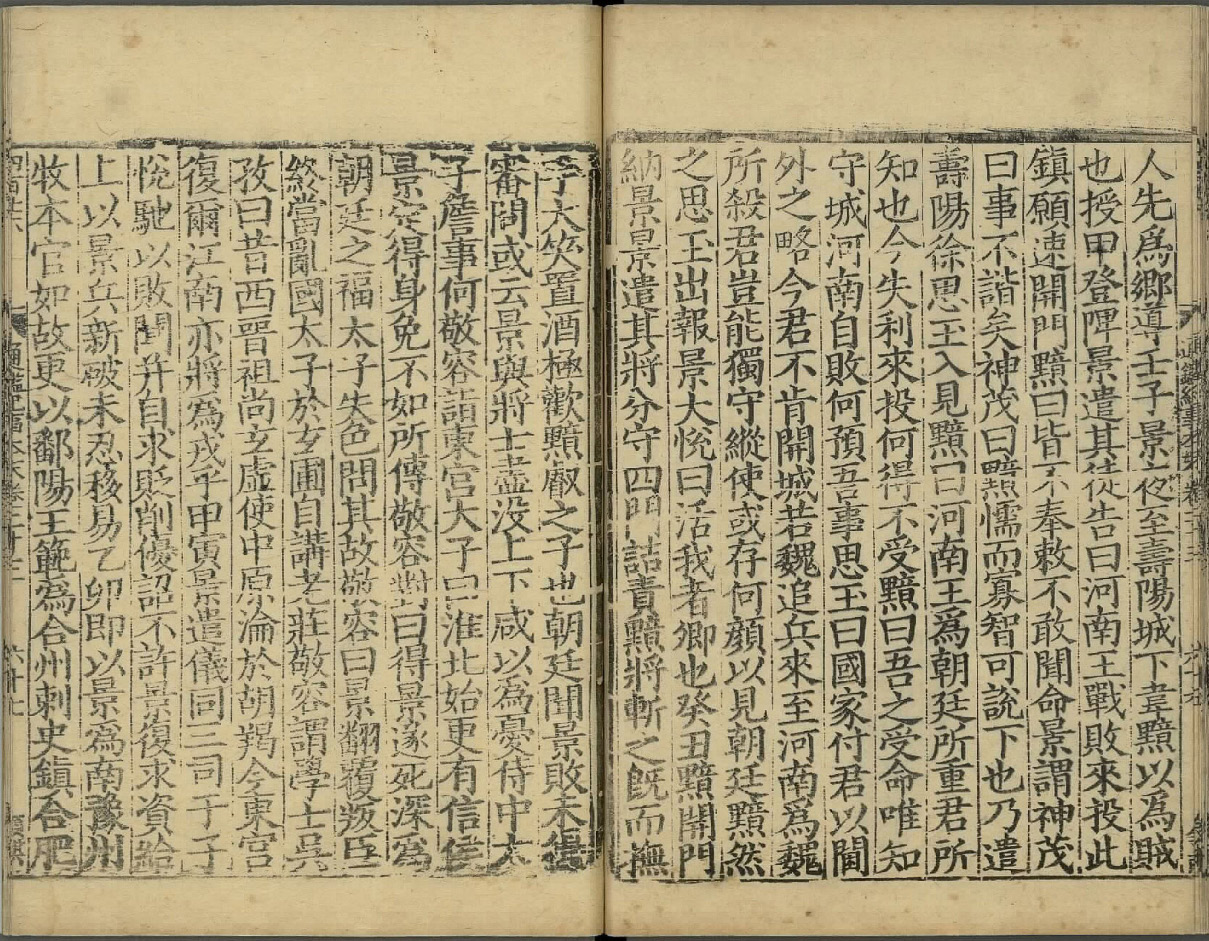 人先為鄉導壬子景夜至壽陽城下韋黯以為賊
也授甲登陴景遣其徒告曰河南王戰敗來投此
鎮願速開門黯曰旣不奉敕不敢聞命景謂神茂
曰事不諧矣神茂曰黯懦而寡智可說下也乃遣
壽陽徐思玉入見黯曰河南王為朝廷所重君所
知也今失利來投何得不受黯曰吾之受命唯知
守城河南自敗何預吾事思玉曰國家付君以閫
外之略今君不肯開城若魏追兵來至河南為魏
所殺君豈能獨守縱使或存何顏以見朝廷黯然
之思玉出報景大悅曰活我者卿也癸丑黯開門
納景景遣其將分守四門詰責黯將斬之旣而撫
手大笑置酒極歡黯叡之子也朝廷聞景敗未得
審問或云景與將士盡沒上下咸以為憂侍中太
子詹事何敬容詣東宮太子曰淮北始更有信侯
景定得身免不如所傳敬容對曰得景遂死深為
朝廷之福太子失色問其故敬容曰景翻覆叛臣
終當亂國太子於玄圃自講老莊敬容謂學士吳
孜曰昔西晉祖尚玄虛使中原淪於胡羯今東宮
復爾江南亦將為戎乎甲寅景遣儀同三司于子
悅馳以敗聞并自求貶削優詔不許景復求資給
上以景兵新破未忍移易乙卯即以景為南豫州
牧本官如故更以鄱陽王範為合州刺史鎮合肥